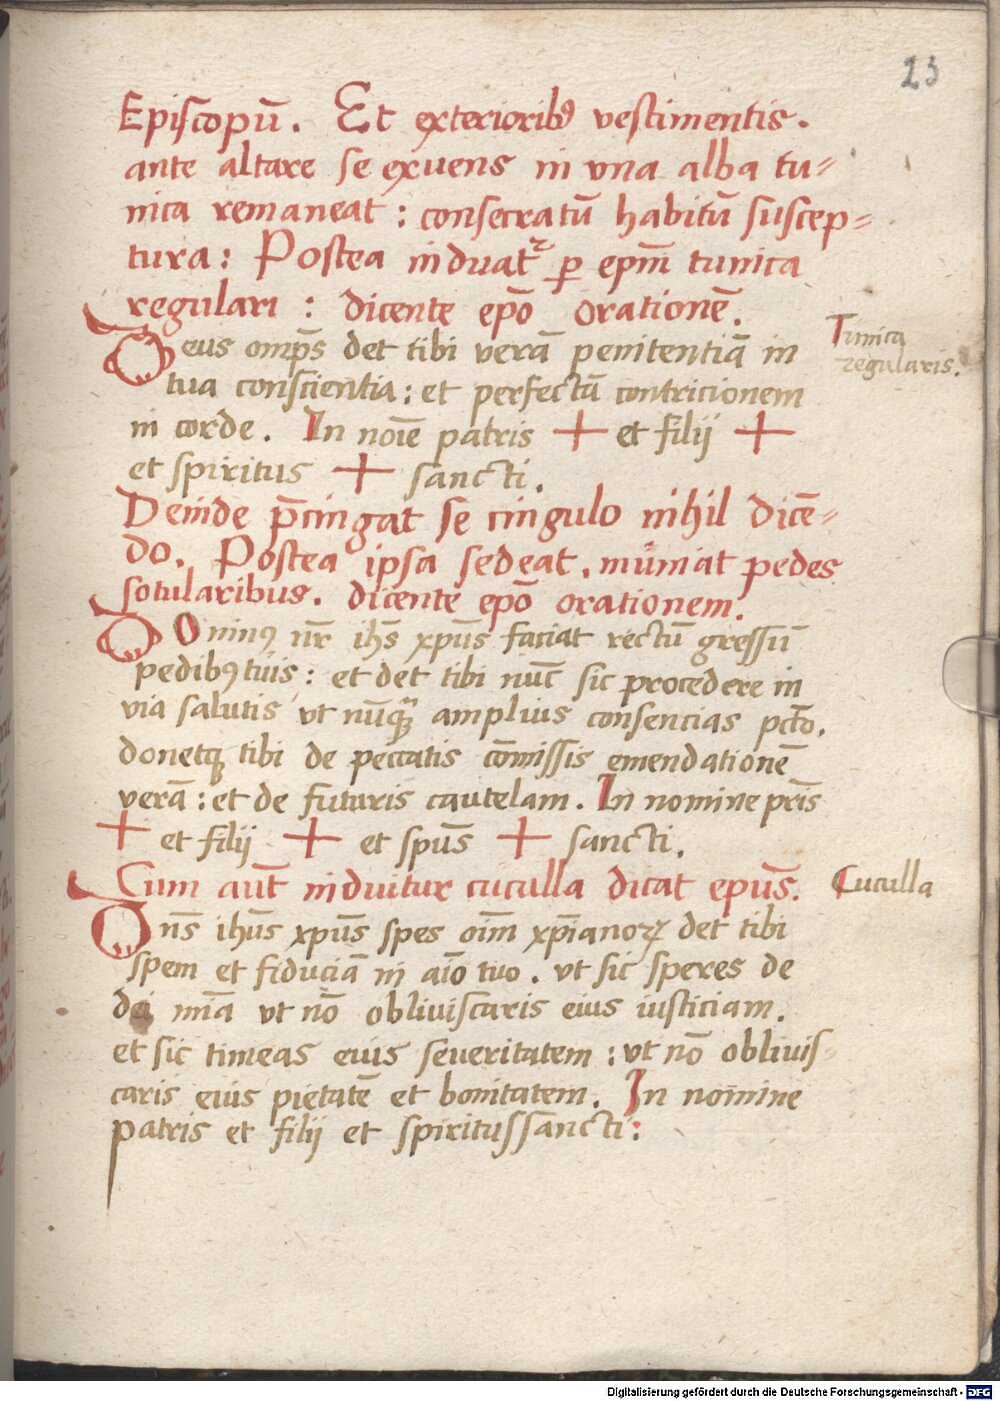 23
Episcopū. Et exteriorib⁹ vestimentis.
ante altare se exuens in vna alba tu=
nica remaneat : consecratū habitū suscep=
tura : Postea induat᷑ ꝑ ep̄m tunica
regulari : dicente ep̄o orationē.
Deus omp̄s det tibi verā penitentiā in
tua conscientia : et perfectā contricionem
in corde. In noīe patris + et filij +
et spiritus + sancti.
Tunica
regularis.
Deinde p̄cingat se cingulo nihil dicē=
do. Postea ipsa sedeat, muniat pedes
sotularibus. dicente ep̄o orationem.
Dominꝰ nr̄ ihs̄ xpūs faciat rectū gressū
pedibꝰ tuis : et det tibi nūc sic procedere in
via salutis vt nūqꝫ amplius consencias pcto.
donetqꝫ tibi de peccatis cōmissis emendationē
verā : et de futuris cautelam. In nomine pr̄is
+ et filij + et spūs + sancti.
Cum aūt induitur cuculla dicat epūs.
Cuculla
Dns̄ ihūs xpūs spes oīm xp̄ianoꝝ det tibi
spem et fiduciā in aīo tuo. vt sic speres de
dei mīa vt nō obliuiscaris eius iusticiam.
et sic timeas eius seueritatem : vt nō obliuis=
caris eius pietatē et bonitatem. In nomine
patris et filij et spiritussancti :
Digitalisierung gefördert durch die Deutsche Forschungsgemeinschaft - DFG